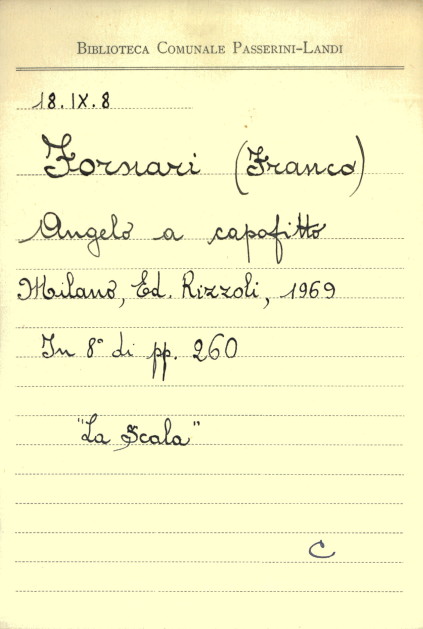 BIBLIOTECA COMUNALE PASSERINI-LANDI
18. IX. 8
Fornari (Franco)
Angelo a capofitto
Milano, Ed. Rizzoli, 1969
In 8° di pp. 260
"La Scala"
C